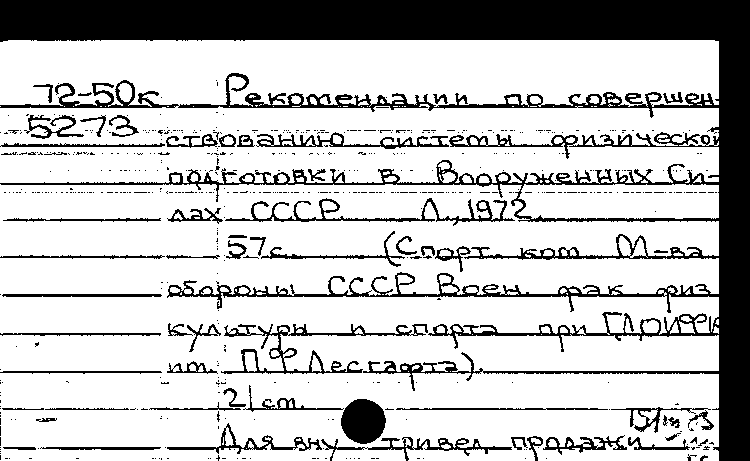 72-50к Рекомендации по совершен-
5273 ствованию системы физической
подготовки в Вооруженных Си-
лах СССР. Л., 1972.
57с. (Спорт. ком. М-ва
обороны СССР. Воен. фак. физ.
культуры и спорта при ГДОИФК
им. П.Ф. Лесгафта).
21 см.
Для вну тривед. продажи.